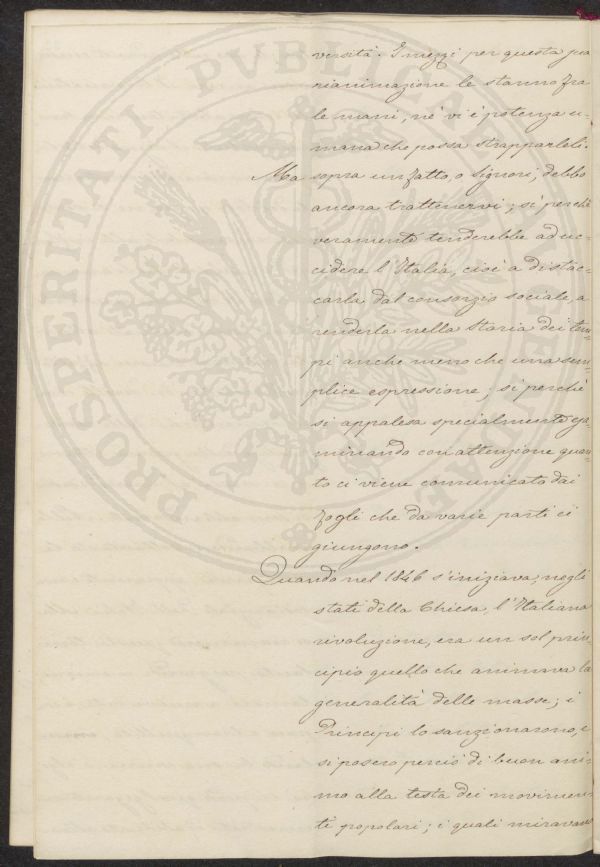 versità. I mezzi per questa sua
rianimazione le stanno fra
le mani, nè vi è potenza u-
mana che possa strapparleli.
Ma sopra un fatto, o Signori, debbo
ancora trattenervi; sì perchè
veramente tenderebbe ad uc-
cidere l'Italia, cioè a distac-
carla dal consorzio sociale, a
renderla nella Storia dei tem-
pi anche meno che una sem-
plice espressione; sì perchè
si appalesa specialmente esa-
minando con attenzione quan-
to ci viene comunicato dai
fogli che da varie parti ci
giungono.
Quando nel 1846 s'iniziava, negli
stati della Chiesa, l'Italiana
rivoluzione, era un sol prin-
cipio quello che animava la
generalità delle masse; i
Principi lo sanzionarono, e
si posero perciò di buon ani-
mo alla testa dei movimen-
ti popolari; i quali miravano
PROSPERITATI PVBLICAE